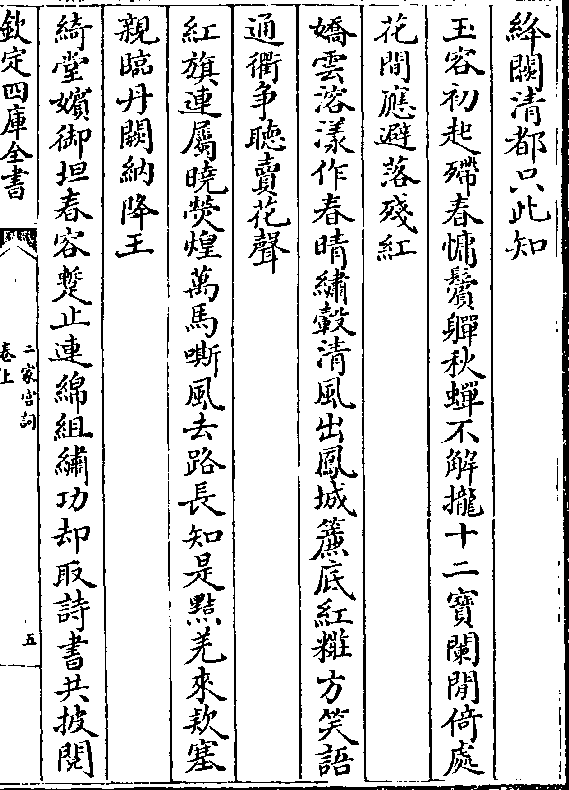 絳闕清都只此知
玉容初起殢春慵鬢軃秋蟬不解攏十二寳闌閒倚處
花間應避落殘紅
嬌雲落漾作春晴繡轂清風出鳳城簾底紅粧方笑語
通衢争聴賣花聲
紅旗連屬曉熒煌萬馬嘶風去路長知是㸃羌來欵塞
親臨丹闕納降王
綺堂嬪御坦春容蹔止連綿組繡功却取詩書共披閲
欽定四庫全書
二家宫詞
卷上
五